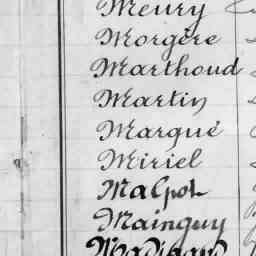 Meury
Morgère
Marthoud
Martin
Marqué
Miriel
Malpot
Mainguy